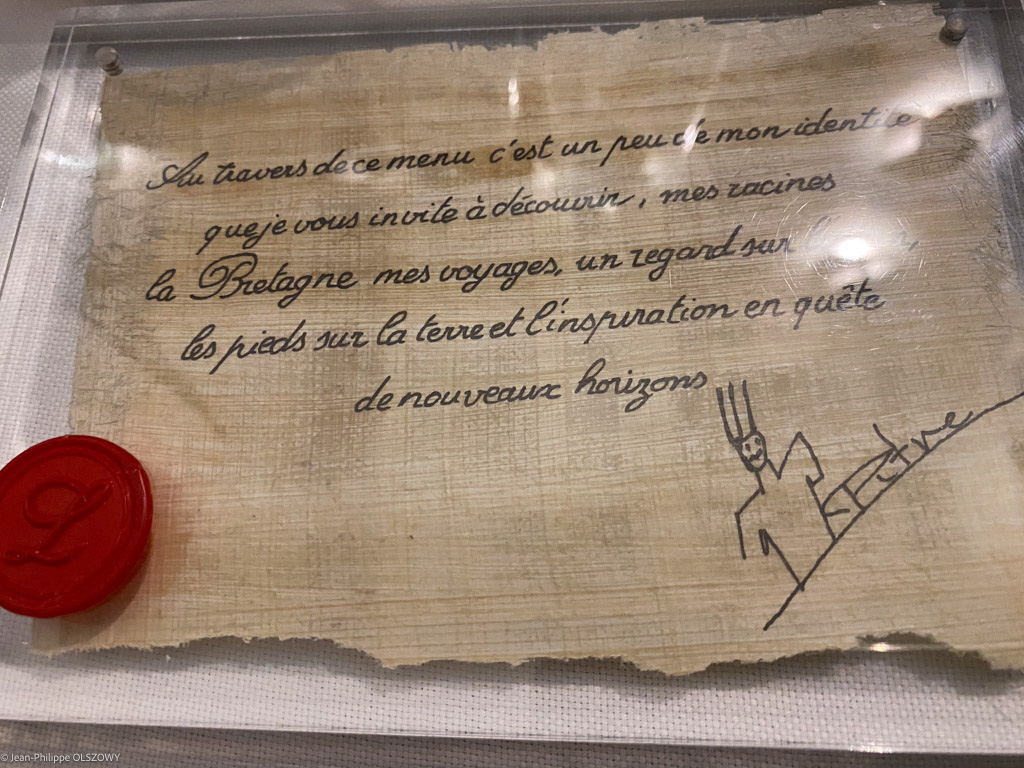 Au travers de ce menu c'est un peu de mon identité
que je vous invite à découvrir, mes racines
la Bretagne mes voyages, un regard sur
les pieds sur la terre et l'inspiration en quête
de nouveaux horizons
L
© Jean-Philippe OLSZOWY